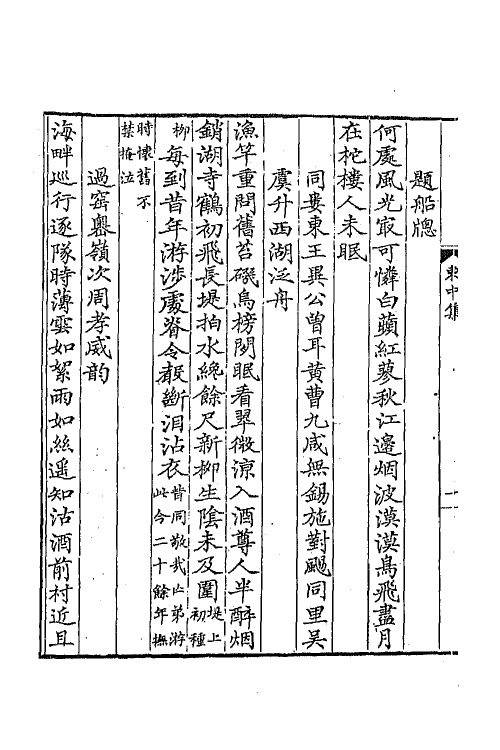 題船牕
何處風光寂可憐白蘋紅蓼秋江邊烟波漠漠鳥飛盡月
在柁樓人未眠
同婁東王異公曾耳黃曹九咸無錫施對颺同里吳
虞升西湖泛舟
漁竿重問舊苔磯烏榜閒眠看翠微涼入酒尊人半醉烟
銷湖寺鶴初飛長堤拍水纔餘尺新柳生陰未及圍堤上初種
柳每到昔年游涉處脊令聲斷淚沾衣昔同敬哉亡弟游此今二十餘年撫
時懷舊不禁掩泣
過窰輿嶺次周孝威韵
海畔巡行逐隊時薄雲如絮雨如絲遥知沽酒前村近且